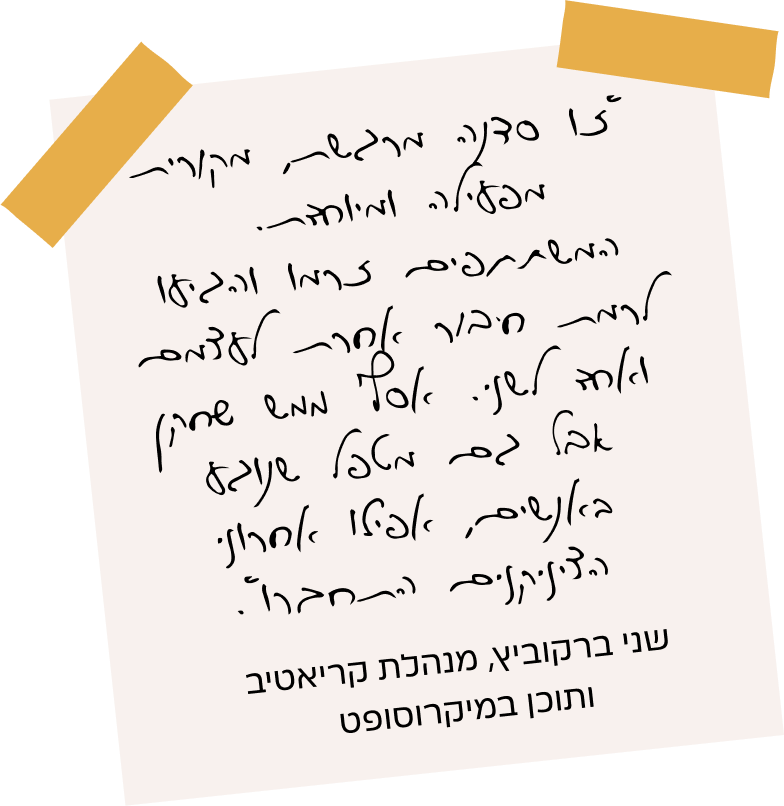 "זו סדנה מרגשת, מקורית
מפעילה ומיוחדת.
המשתתפים זרמו והגיעו
לרמת חיבור אחרת לעצמם
ואחד לשני. אסף ממש שחקן
אבל גם מטפל שנוגע
באנשים, אפילו אחרוני
הציניקנים התחברו".
שני ברקוביץ, מנהלת קריאטיב
ותוכן במיקרוסופט